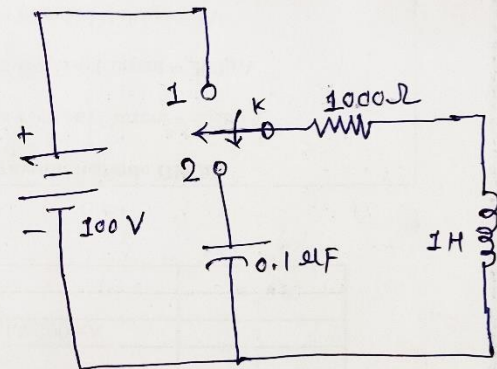 1
K
1000Ω
+
2
-
100 V
0.1 μF
1H